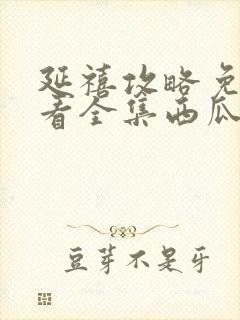 延禧攻略免
看全集西瓜
豆芽不是牙